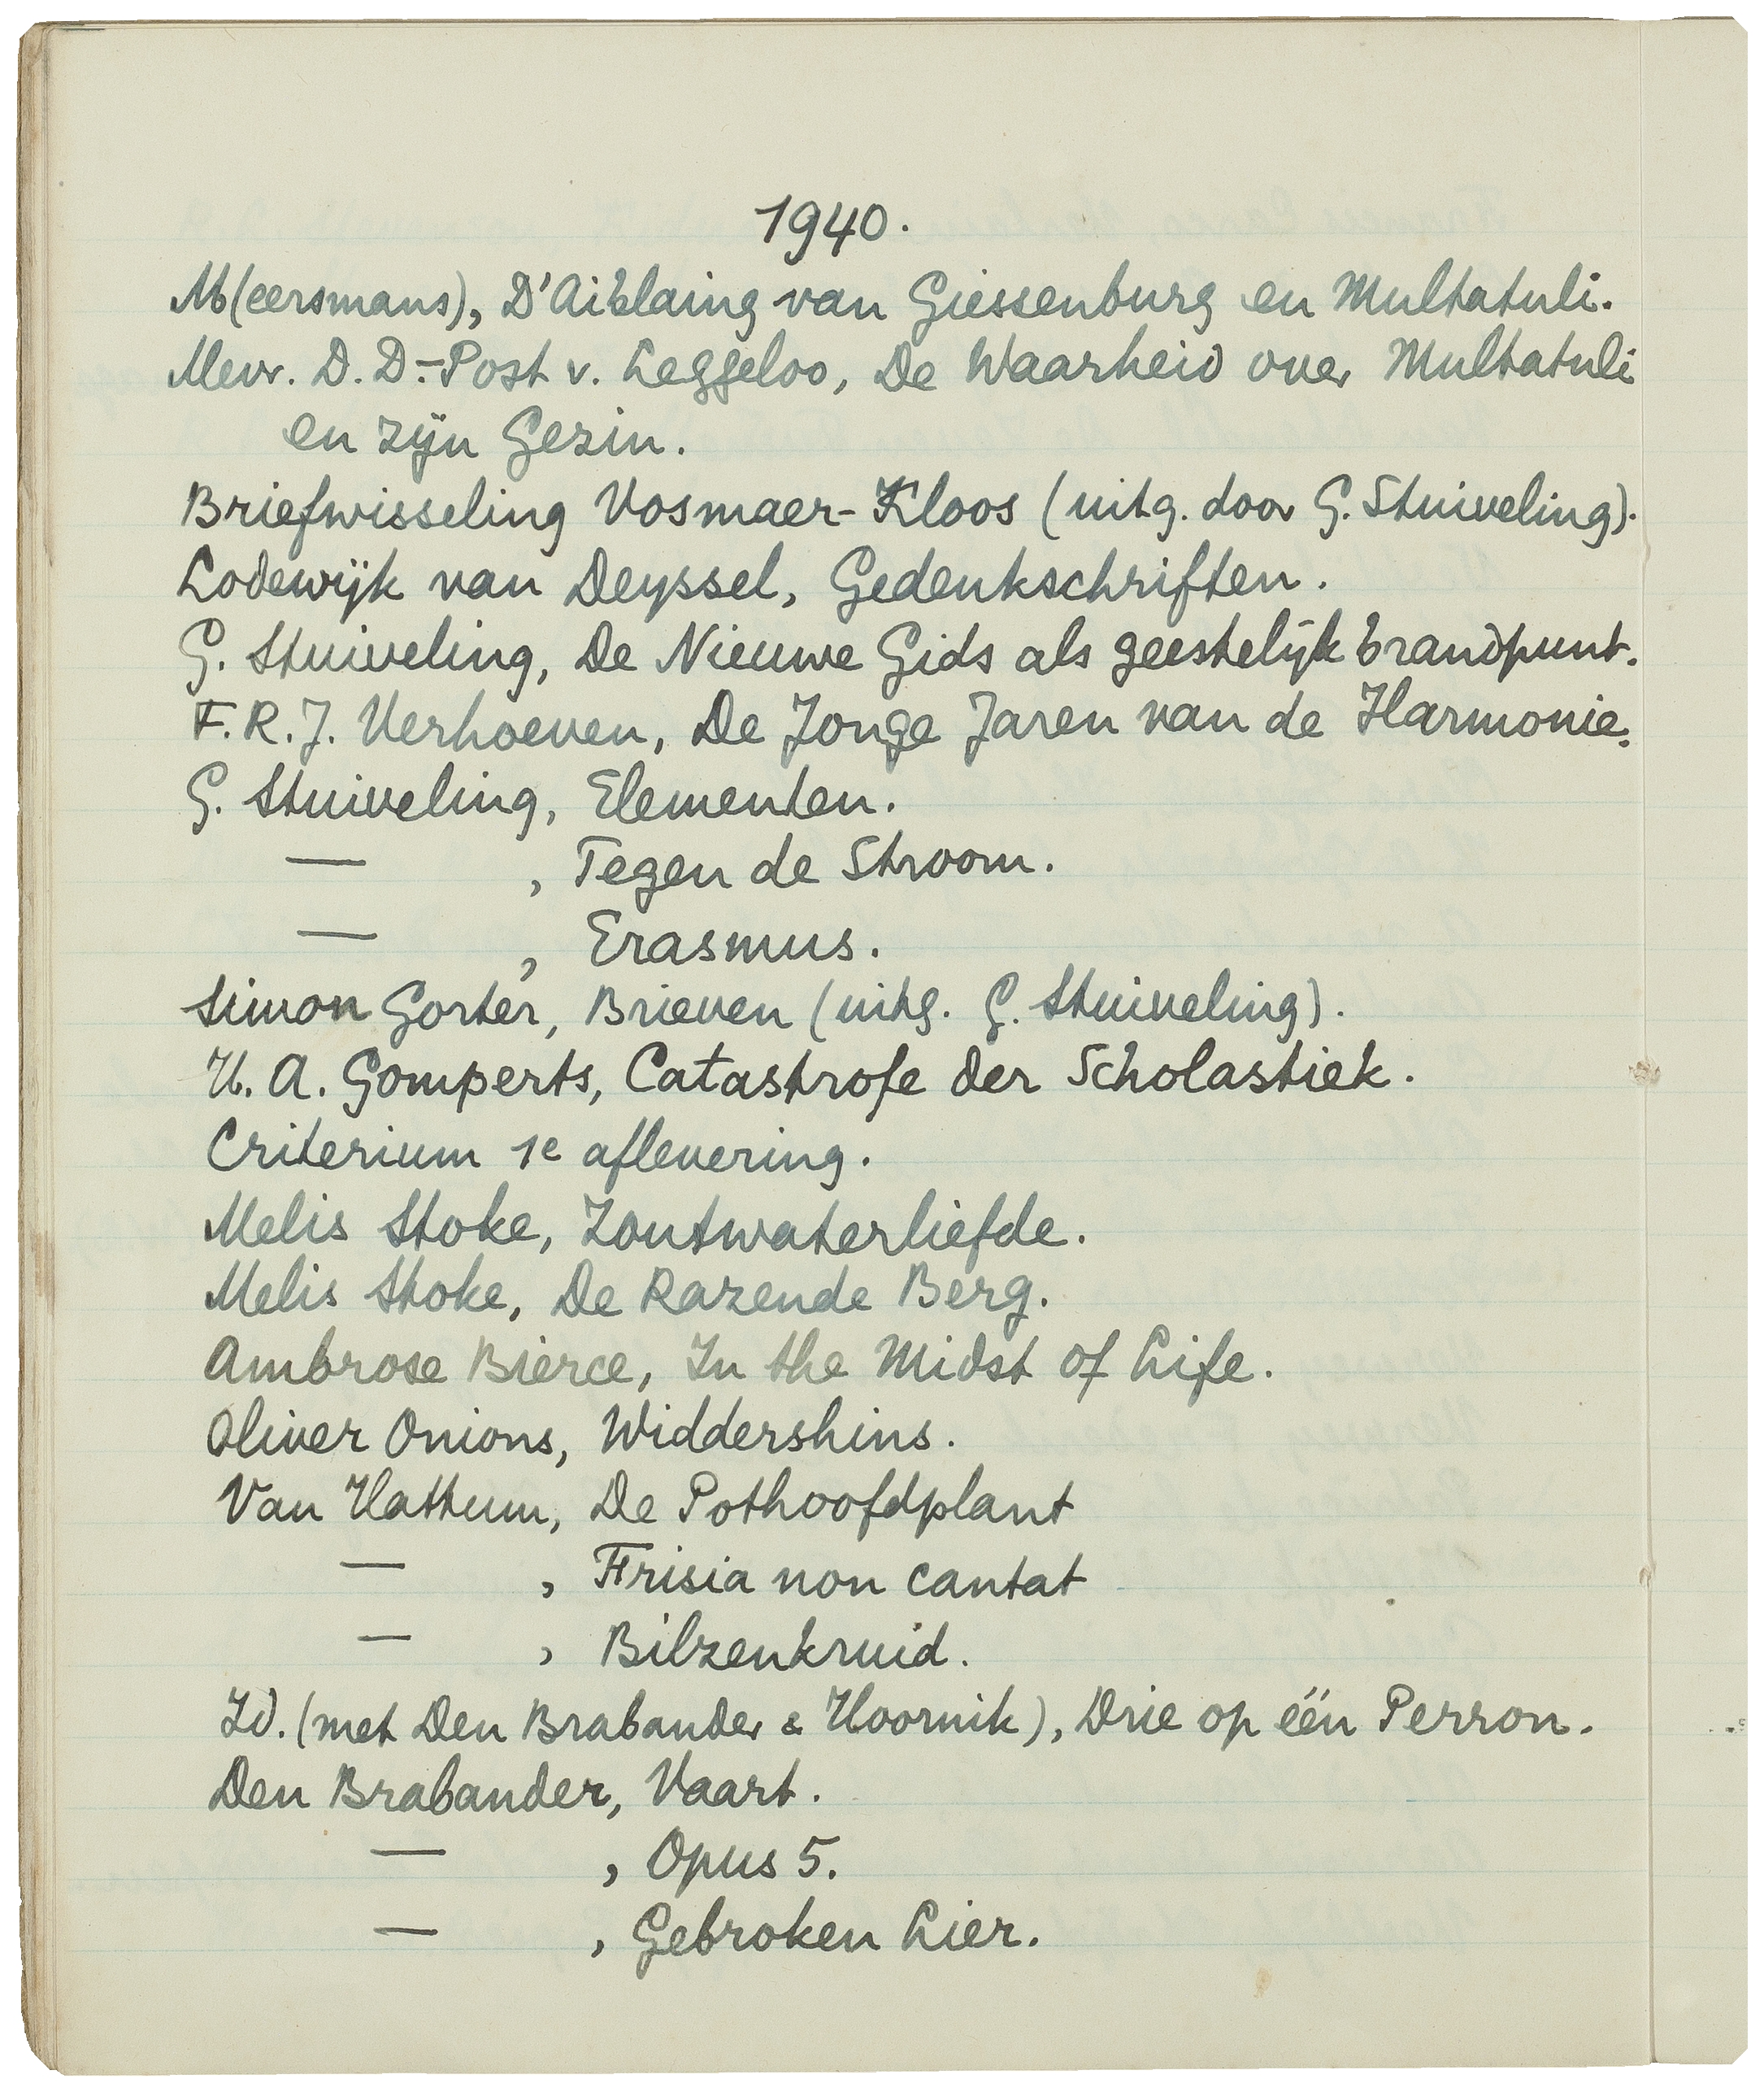 1940.
M(eersmans), D'Ablaing van Giessenburg en Multatuli.
Mevr. D. D.-Post v. Leggeloo, De Waarheid over Multatuli
en zijn Gezin.
Briefwisseling Vosmaer-Kloos (uitg. door G. Stuiveling).
Lodewijk van Deyssel, Gedenkschriften.
G. Stuiveling, De Nieuwe Gids als geestelijk brandpunt.
F. R. J. Verhoeven, De Jonge Jaren van de Harmonie.
G. Stuiveling, Elementen.
— , Tegen de Stroom.
— , Erasmus.
Simon Gorter, Brieven (uitg. G. Stuiveling).
H. A. Gomperts, Catastrofe der Scholastiek.
Criterium 1e aflevering.
Melis Stoke, Zoutwaterliefde.
Melis Stoke, De Razende Berg.
Ambrose Bierce, In the Midst of Life.
Oliver Onions, Widdershins.
Van Hattum, De Pothoofdplant
— , Frisia non cantat
— , Bilzenkruid.
Id. (met Den Brabander & Hoornik), Drie op één Perron.
Den Brabander, Vaart.
— , Opus 5.
— , Gebroken Lier.